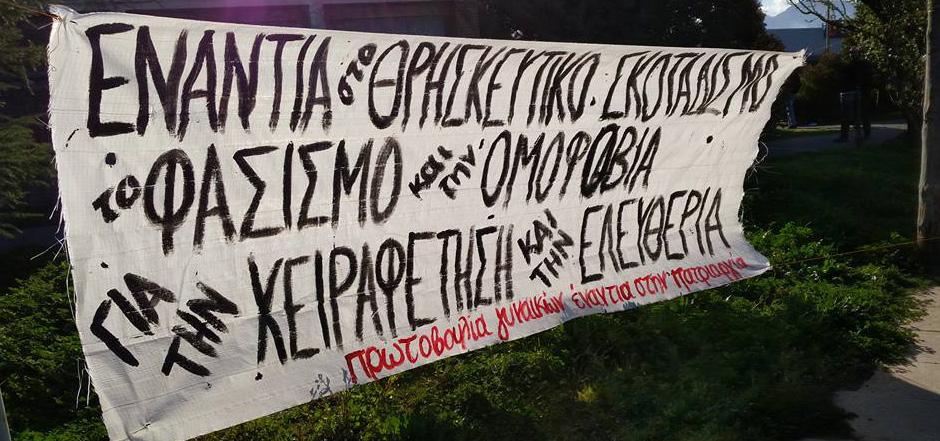 ΕΝΑΝΤΙΑ στο ΘΡΗΣΚΕΥΤΙΚΟ. ΣΚΟΤΑΔΙΣΜΟ
το ΦΑΣΙΣΜΟ και την ΟΜΟΦΟΒΙΑ
ΓΙΑ ΤΗΝ ΧΕΙΡΑΦΕΤΗΣΗ ΚΑΙ ΤΗΝ ΕΛΕΥΘΕΡΙΑ
πρωτοβουλία γυναικών ένάντια στην πατριαρχία